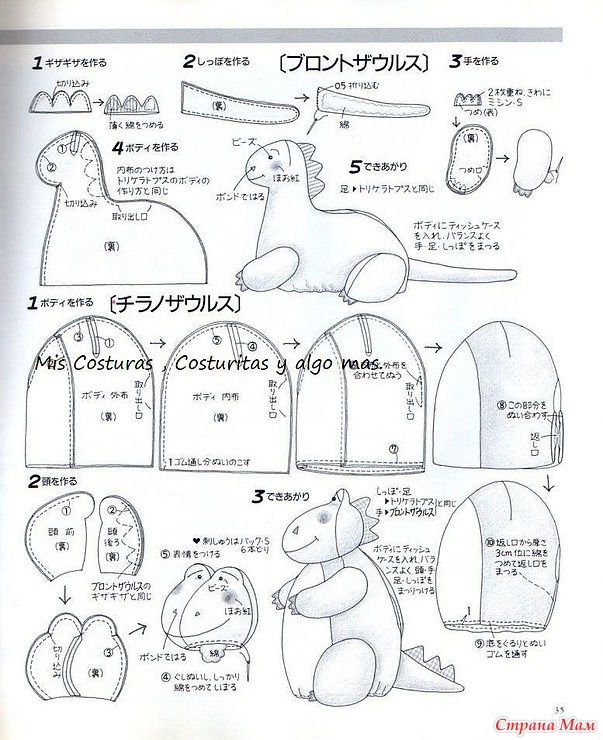 1 ギザギザを作る
切り込み
薄く綿をつめる
2 しっぽを作る
(裏)
0.5 折り込む
綿
〔ブロントザウルス〕
3 手を作る
2枚重ね、きわに
ミシン・S
つめ(表)
(裏)
つめ口
4 ボディを作る
内布のつけ方は
トリケラトプスのボディの
作り方と同じ
①
②
切り込み
取り出し口
(裏)
ビーズ
ほお紅
ボンドではる
5 できあがり
足▶トリケラトプスと同じ
ボディにティッシュケース
を入れ、バランスよく
手・足・しっぽをまつる
1 ボディを作る
〔チラノザウルス〕
③
①
ボディ 外布
(裏)
取り出し口
⑤
④
ボディ 内布
(裏)
取り出し口
1 ゴム通し分ぬいのこす
外布を
合わせてぬう
取り出し口
⑦
⑧ この部分を
ぬい合わす
返し口
Mis Costuras , Costuritas y algo mas.
2 頭を作る
①
頭 前
(裏)
②
頭
後ろ
(裏)
ブロントザウルスの
ギザギザと同じ
切り込み
③
(裏)
♥ 刺しゅうはバック・S
6本どり
⑤ 表情をつける
ビーズ
ほお紅
ボンドではる
綿
④ ぐしぬいし、しっかり
綿をつめてしぼる
3 できあがり
しっぽ・足
▶トリケラトプスと同じ
手▶ブロントザウルス
ボディにティッシュ
ケースを入れ、バラ
ンスよく、頭・手・
足・しっぽを
まつりつける
⑩ 返し口から厚さ
3cm位に綿を
つめて返し口を
まつる
1
⑨ 底をぐるりとぬい
ゴムを通す
35
Страна Мам